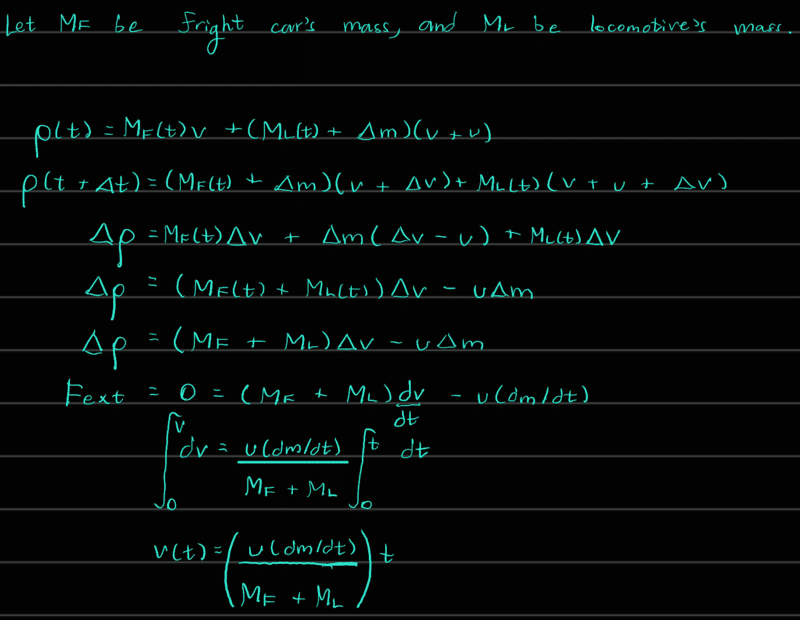 Let MF be fright car's mass, and ML be locomotive's mass.
p(t) = MF(t)v + (ML(t) + Δm)(v + u)
p(t + Δt) = (MF(t) + Δm)(v + Δv) + ML(t)(v + u + Δv)
Δp = MF(t)Δv + Δm(Δv - u) + ML(t)ΔV
Δp = (MF(t) + ML(t))Δv - uΔm
Δp = (MF + ML)Δv - uΔm
Fext = 0 = (MF + ML) dv/dt - u(dm/dt)
∫₀ᵛ dv = u(dm/dt) / MF + ML ∫₀ᵗ dt
v(t) = (u(dm/dt) / MF + ML) t